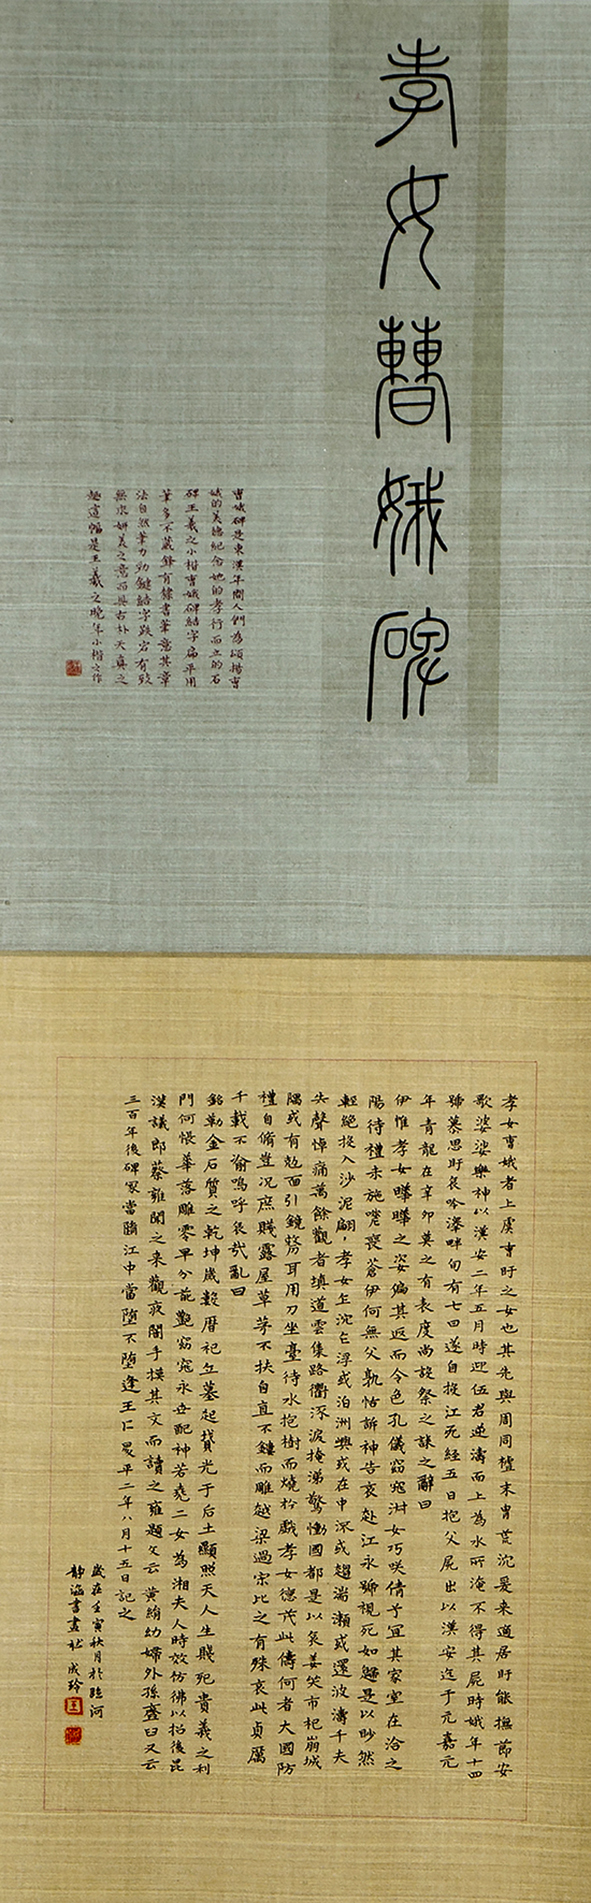 孝女曹娥碑
曹娥碑是東漢年間人們為頌揚曹
娥的美德紀念她的孝行而立的石
碑王羲之小楷曹娥碑結字扁平用
筆多不藏鋒有隸書筆意其章
法自然筆力勁健結字跌宕有致
無求妍美之意而具古朴天真之
趣這幅是王羲之晚年小楷之作
孝女曹娥者上虞曹盱之女也其先與周同祖末胄荒沉爰来適居盱能撫節安
歌婆娑樂神以漢安二年五月時迎伍君逆濤而上為水所淹不得其屍時娥年十四
號慕思盱哀吟澤畔旬有七日遂自投江死經五日抱父屍出以漢安迄于元嘉元
年青龍在辛卯莫之有表度尚設祭之誄之辭曰
伊惟孝女曄曄之姿偏其返而令色孔儀窈窕淑女巧咲倩兮宜其家室在洽之
陽待禮未施嗟喪蒼伊何無父孰怙訴神告哀赴江永號視死如歸是以眇然
輕絕投入沙泥翩翩孝女乍沉乍浮或泊洲嶼或在中流或趨湍瀨或還波濤千夫
失聲悼痛萬餘觀者填道雲集路衢流淚掩涕驚慟國都是以哀姜哭市杞崩城
隅或有尅面引鏡剺耳用刀坐臺待水抱樹而燒於戲孝女德茂此儔何者大國防
禮自脩豈况庶賤露屋草茅不扶自直不鏤而雕越梁過宋比之有殊哀此貞厲
千載不渝嗚呼哀哉亂曰
銘勒金石質之乾坤歲數曆祀立墓起墳光于后土顯照天人生賤死貴義之利
門何悵華落雕零早分葩艷窈窕永世配神若堯二女為湘夫人時效仿彿以招後昆
漢議郎蔡雍聞之来觀夜闇手摸其文而讀之雍題文云黄絹幼婦外孫韲臼又云
三百年後碑冢當墮江中當墮不墮逢王叵昇平二年八月十五日記之
歲在壬寅秋月於臨河
靜涵書畫社成玲